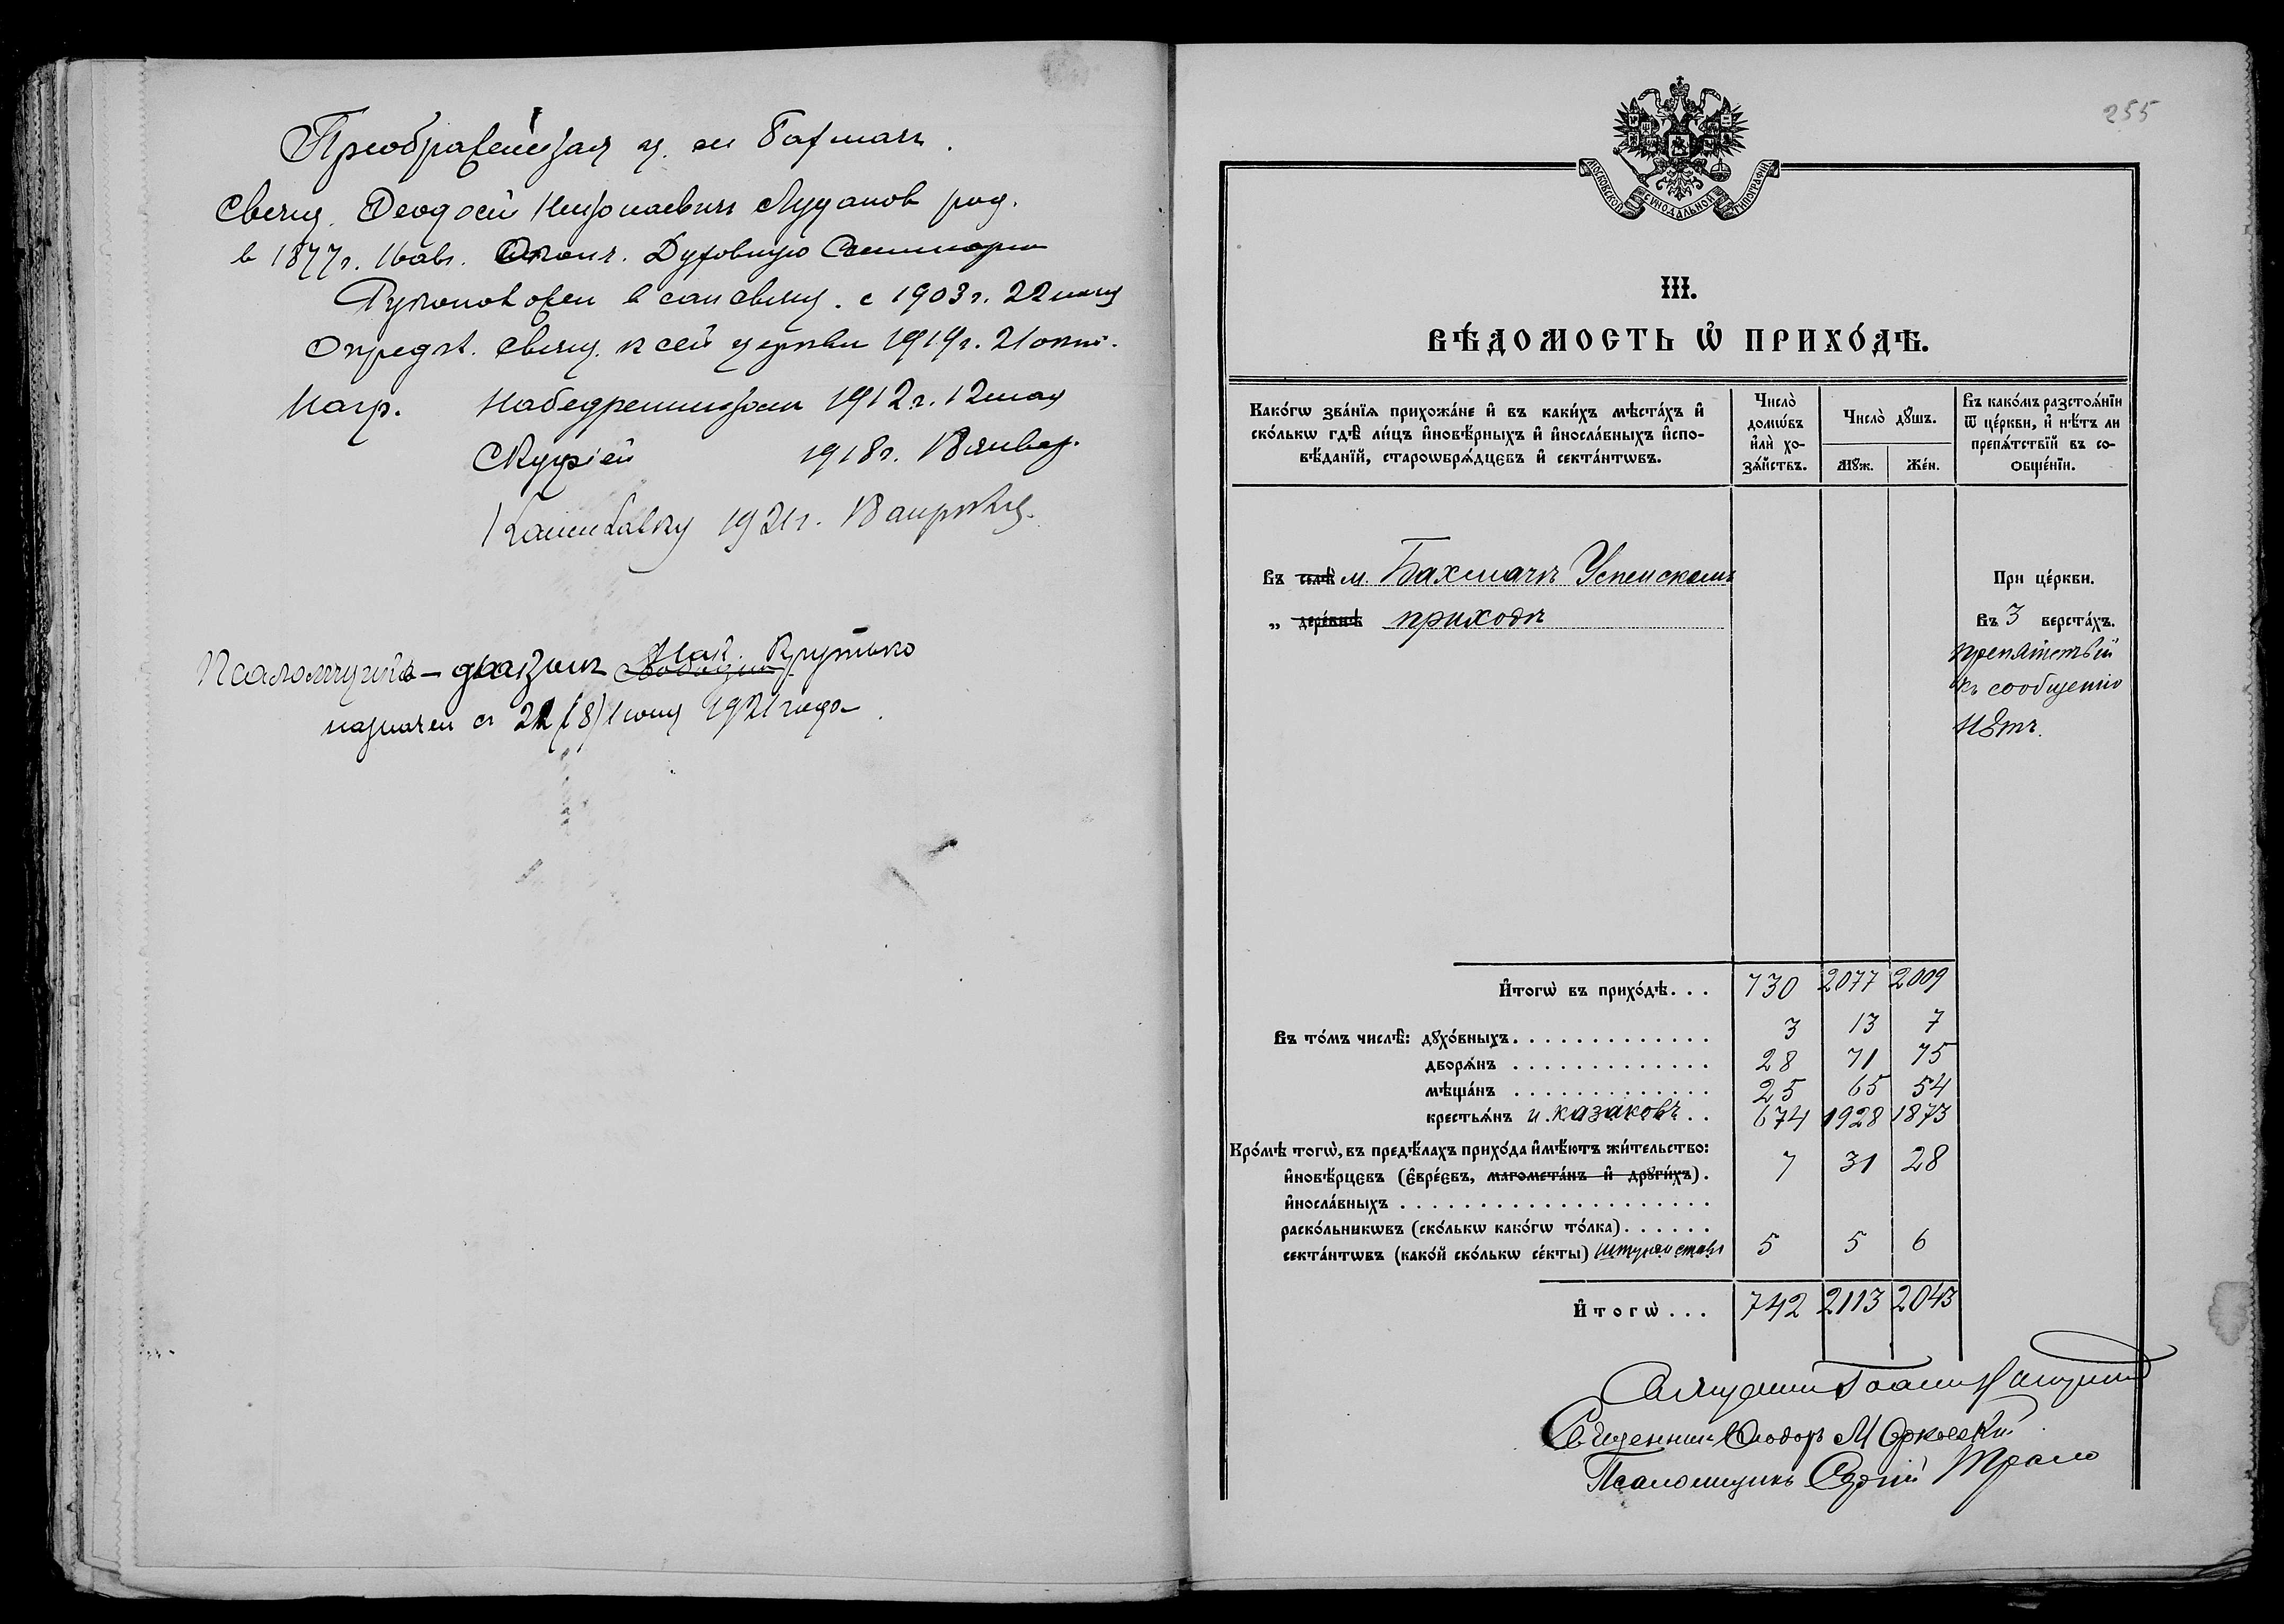 Преображенская ц. м Бахмач.
Свящ. Феодосий Лузанов род.
в 1877 г. 16 авг. Оконч. Духовную Семинарию
Рукоположен в сан свящ. с 1903 г. 22
Определ. свящ. к сей церкви 1919 г. 21 окт.
Нагр. Набедренником 1912 г. 12 мая
Скуфіей 1918 г. январ.
Камилавку 1921 г.
Псаломщик – диакон Крутько
назначен с 1921 года
255
МОСКОВСКОЙ СѴНОДАЛЬНОЙ ТИПОГРАФІИ
III.
ВѢ́ДОМОСТЬ Ѡ҆ ПРИХО́ДѢ.
Какѡ́гѡ зва́нїѧ прихожа́не и҆ въ каки́хъ мѣста́хъ и҆
ско́лькѡ гдѣ̀ ли́цъ и҆новѣ́рныхъ и҆ и҆носла́вныхъ и҆спо-
вѣ́данїй, староѡбрѧ́дцєвъ и҆ секта́нтѡвъ.
Число̀
домѡ́въ
и҆лѝ хо-
зѧ́йствъ.
Число̀ дꙋ́шъ.
Мꙋ́ж.
Же́н.
Въ како́мъ разстоѧ́нїи
ѿ це́ркви, и҆ нѣ́тъ ли
препѧ́тствїй въ со-
ѻбще́нїи.
Въ селѣ̀ м. Бахмачѣ Успенскомъ
При це́ркви.
„ дере́внѣ приходѣ
Въ 3 верста́хъ.
препятствій
къ сообщенію
нѣтъ.
И҆тогѡ̀ въ прихо́дѣ... 730 2077 2009
Въ то́мъ числѣ̀: дꙋхо́вныхъ. . . 3 13 7
дворѧ́нъ . . . 28 71 75
мѣща́нъ . . . 25 65 54
крестьѧ́нъ и казаковъ . . 674 1928 1873
Кро́мѣ тогѡ̀, въ предѣ́лахъ прихо́да и҆мѣ́ютъ жи́тельство:
и҆новѣ́рцєвъ (є҆вре́євъ, магомета́нъ и҆ дрꙋги́хъ). 7 31 28
и҆носла́вныхъ . . .
раско́льникѡвъ (ско́лькѡ како́гѡ то́лка). . .
секта́нтѡвъ (како́й ско́лькѡ се́кты) штундистовъ 5 5 6
И҆тогѡ̀... 742 2113 2043
Священникъ Іоаннъ
Священникъ Ѳеодоръ
Псаломщикъ Сергій